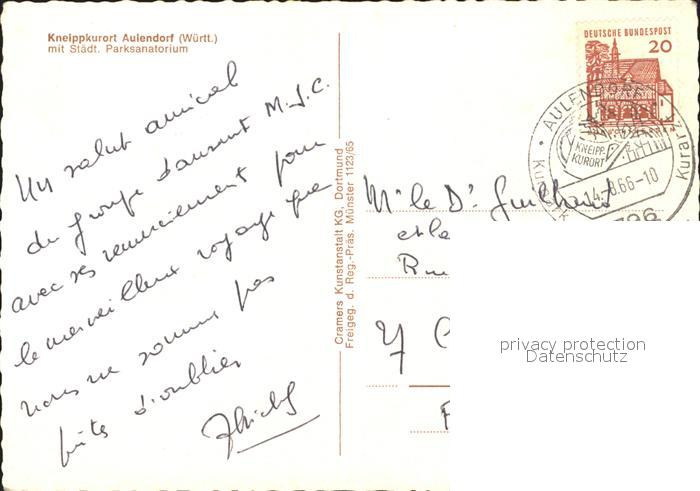 Kneippkurort Aulendorf (Württ.)
mit Städt. Parksanatorium
Un salut amical
du groupe d'aurent M.J.C.
avec ses remerciement pour
le merveilleux voyage que
nous ne sommes pas
prêts d'oublier
Cramers Kunstanstalt KG, Dortmund
Freigeg. d. Reg.-Präs. Münster 1123/65
DEUTSCHE BUNDESPOST
20
AULENDORF
KNEIPP
KURORT
14.-8.66-10
796
Mr le Dr Guilhaud
et
privacy protection
Datenschutz